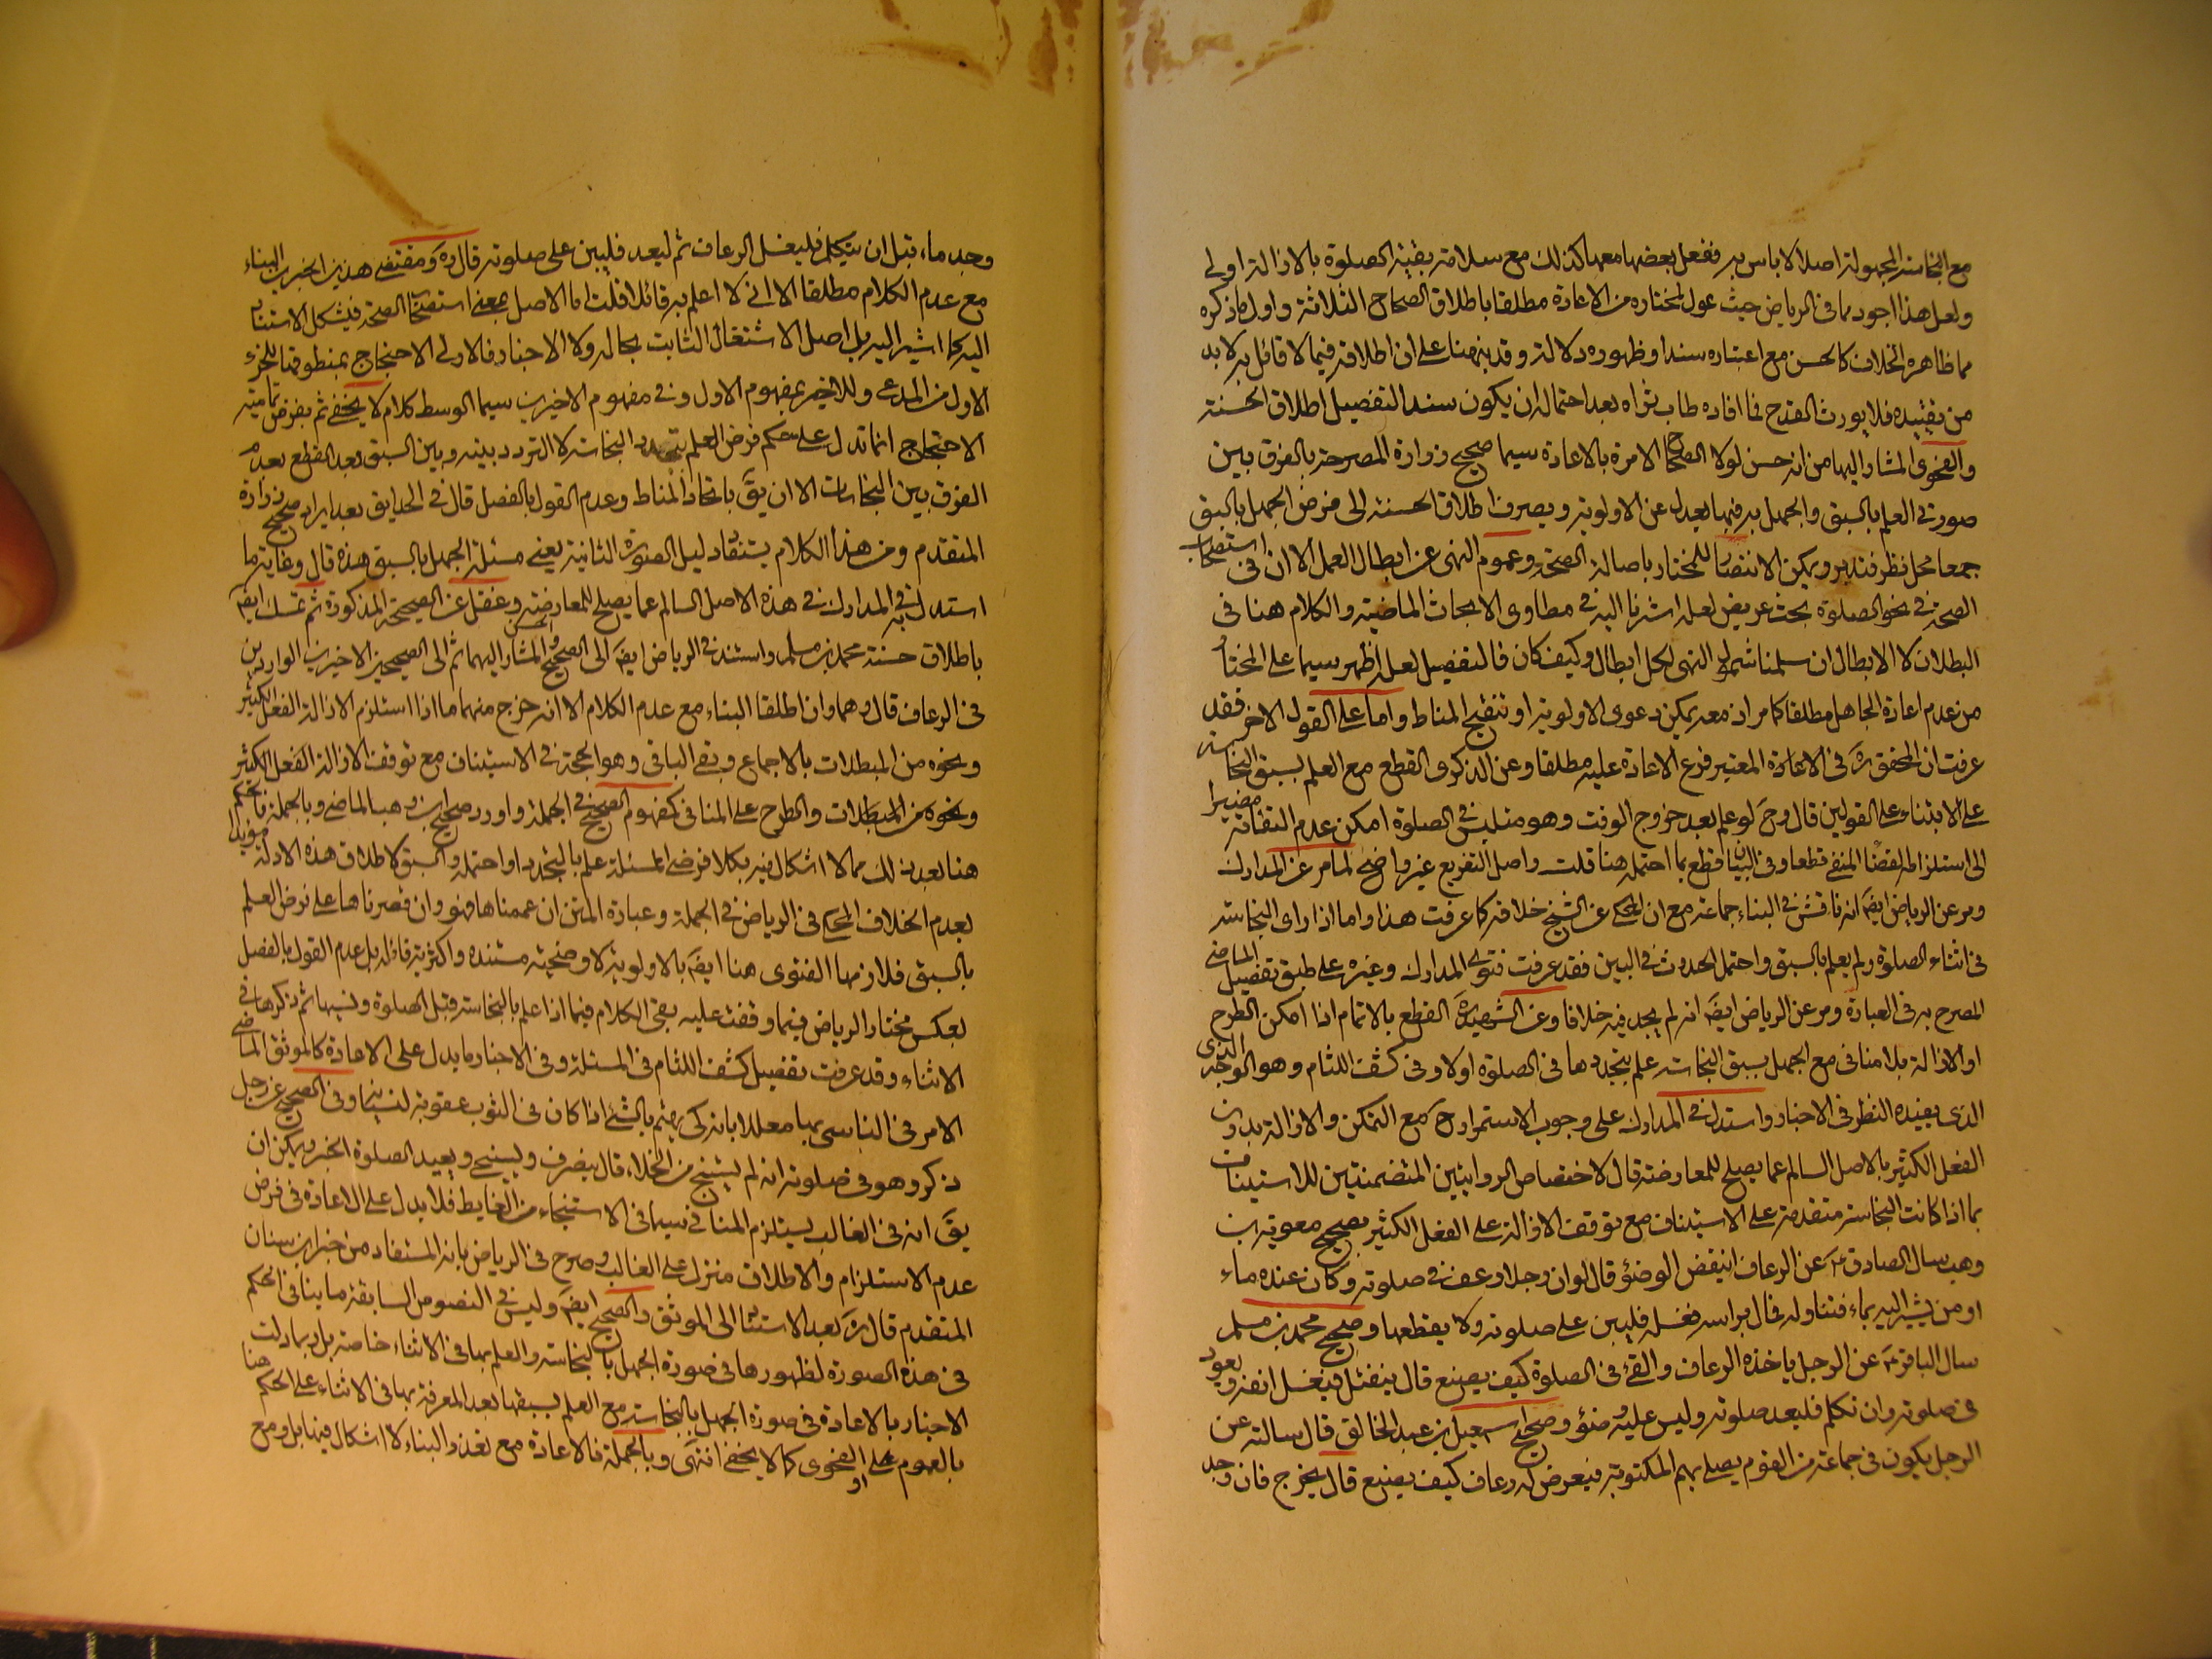 مع النجاسة المجهولة اصلا لا باس به ففعل بعضها معها كذلك مع سلامة بقية الصلوة بالازالة اولى
ولعل هذا اجود مما في الرياض حيث عول لمختاره من الاعادة مطلقا باطلاق الصحاح الثلاثة واول ما ذكره
مما ظاهره الخلاف كالحسن مع اعتباره سندا وظهوره دلالة وقد نبهنا على ان اطلاقه فيما لا قائل به لا بد
من تقييده فلا يورث القدح فما افاده طاب ثراه بعد احتماله ان يكون سند التفصيل اطلاق الحسنة
والفحوى المشار اليها من انه حسن لولا الصحاح الامرة بالاعادة سيما صحيح زرارة المصرحة بالفرق بين
صورتي العلم بالسبق والجهل به فيها يعدل عن الاولوية ويصرف اطلاق الحسنة الى فرض الجهل بالسبق
جمعا محل نظر فتدبر ويمكن الانتصار للمختار باصالة الصحة وعموم النهى عن ابطال العمل الا ان في استصحاب
الصحة في نحو الصلوة بحث عريض لعله اشرنا اليه في مطاوى الابحاث الماضية والكلام هنا في
البطلان لا الابطال ان سلمنا شمول النهى لكل ابطال وكيف كان فالتفصيل لعله اظهر سيما على المختار
من عدم اعادة الجاهل مطلقا كما مر اذ معه يمكن دعوى الاولوية او تنقيح المناط واما على القول الاخر فقد
عرفت ان المحقق ره في المعتبر فرع الاعادة عليه مطلقا وعن الذكرى القطع مع العلم بسبق النجاسة
على الابتناء على القولين قال وح لو علم بعد خروج الوقت وهو متلبس في الصلوة امكن عدم التفاته مصيرا
الى استلزامه القضا المنفى قطعا وفى البيان قطع بما احتمله هنا قلت واصل التفريع غير واضح لما مر عن المدارك
ومر عن الرياض ايضا انه ناقش في البناء جماعة مع ان المحكى عن الشيخ خلافه كما عرفت هذا واما اذا راى النجاسة
في اثناء الصلوة ولم يعلم بالسبق واحتمل الحدوث في البين فقد عرفت فتوى المدارك وغيره على طبق تفصيل الماضى
المصرح به في العبارة ومر عن الرياض ايضا انه لم يجد فيه خلافا وعن الشهيد ره القطع بالاتمام اذا امكن الطرح
او الازالة بلا منافى مع الجهل بسبق النجاسة علم بتجددها في الصلوة اولا وفى كشف اللثام وهو الوجه الذى
الذى يفيده النظر في الاخبار واستدل في المدارك على وجوب الاستمرار ح مع التمكن والازالة بدون
الفعل الكثير بالاصل السالم عما يصلح للمعارضة قال لاختصاص الروايتين المتضمنتين للاستيناف
بما اذا كانت النجاسة متقدمة على الاستيناف مع توقف الازالة على الفعل الكثير بصحيح معوية بن
وهب سال الصادق ع عن الرعاف اينقض الوضوء قال لو ان رجلا رعف في صلوته وكان عنده ماء
او من يشير اليه بماء فتناوله فمال براسه فغسله فليبن على صلوته ولا يقطعها وصحيح محمد بن مسلم
سال الباقر ع عن الرجل ياخذه الرعاف والقئ في الصلوة كيف يصنع قال ينفتل فيغسل انفه ويعود
في صلوته وان تكلم فليعد صلوته وليس عليه وضوء وصحيح اسمعيل بن عبد الخالق قال سالته عن
الرجل يكون في جماعة من القوم يصلى بهم المكتوبة فيعرض له رعاف كيف يصنع قال يخرج فان وجد
وجد ماء قبل ان يتكلم فليغسل الرعاف ثم ليعد فليبن على صلوته قال ره ومقتضى هذين الخبرين البناء
مع عدم الكلام مطلقا الا انى لا اعلم به قائلا قلت اما الاصل بمعنى استصحاب الصحة فيشكل الاستناد
اليه كما اشير اليه بل اصل الاشتغال الثابت بحاله ولا الاخبار فالاولى الاحتجاج بمنطوقها للجزء
الاول من المدعى وللاخير بمفهوم الاول وفى مفهوم الاخيرين سيما الوسط كلام لا يخفى ثم بفرض تمامية
الاحتجاج انما تدل على حكم فرض العلم بتجدد النجاسة لا التردد بينه وبين السبق بعد القطع بعدم
الفرق بين النجاسات الا ان يق باتحاد المناط وعدم القول بالفصل قال في الحدايق بعد ايراد صحيح زرارة
المتقدم ومن هذا الكلام يستفاد دليل الصورة الثانية يعنى مسئلة الجهل بالسبق هذه قال وغاية ما
استدل به في المدارك في هذه الاصل السالم عما يصلح للمعارضة وغفل عن الصحيحة المذكورة ثم تمسك ايضا
باطلاق حسنة محمد بن مسلم واستند في الرياض ايضا الى الصحيح والحسن المشار اليهما ثم الى الصحيحين الاخيرين الواردين
في الرعاف قال وهما وان اطلقا البناء مع عدم الكلام الا انه خرج منهما ما اذا استلزم الازالة الفعل الكثير
ونحوه من المبطلات بالاجماع وبقى الباقى وهو الحجة في الاستيناف مع توقف الازالة الفعل الكثير
ونحوه من المبطلات والطرح على المنافى كمفهوم الصحيح في الجملة واورد صحيح ابن وهب الماضى وبالجملة فالحكم
هنا بعد ذلك مما لا اشكال فيه بكلا فرضى المسئلة علم بالتجدد او احتمله والسبق لاطلاق هذه الادلة مؤيدا
بعدم الخلاف المحكى في الرياض في الجملة وعبارة المتن ان عممناها فهو وان قصرناها على فرض العلم
بالسبق فلازمها الفتوى هنا ايضا بالاولوية لا وضحية مستنده واكثرية قائله بل عدم القول بالفصل
بعكس مختار الرياض فيما وقفت عليه بقى الكلام فيما اذا علم بالنجاسة قبل الصلوة ونسيها ثم ذكرها في
الاثناء وقد عرفت تفصيل كشف اللثام في المسئلة وفى الاخبار ما يدل على الاعادة كالموثق الماضى
الامر في الناسى بها معللا بانه كى يهتم بالشئ اذا كان في الثوب عقوبة لنسيانه وفى الصحيح عن رجل
ذكر وهو في صلوته انه لم يستنج من الخلاء قال ينصرف ويستنجى ويعيد الصلوة الخبر ويمكن ان
يق انه في الغالب يستلزم المنافى سيما في الاستنجاء من الغايط فلا يدل على الاعادة في فرض
عدم الاستلزام والاطلاق منزل على الغالب وصرح في الرياض بانه المستفاد من خبر ابن سنان
المتقدم قال ره بعد الاستناد الى الموثق والصحيح ايضا وليس في النصوص السابقة ما ينافى الحكم
في هذه الصورة لظهورها في صورة الجهل بالنجاسة والعلم بها في الاثناء خاصة بل ربما دلت
الاخبار بالاعادة في صورة الجهل بالنجاسة مع العلم بسبقها بعد المعرفة بها في الاثناء على الحكم هنا
بالعموم او الفحوى كما لا يخفى انتهى وبالجملة فالاعادة مع تعذر البناء لا اشكال فيها بل ومع